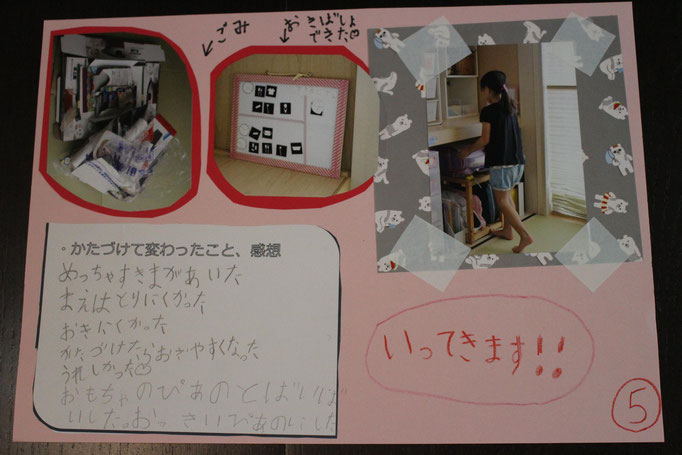 ごみ
おきばしょ
できた♡
・かたづけて変わったこと、感想
めっちゃすきまがあいた
まえはとりにくかった
おきにくかった
かたづけたらおきやすくなった
うれしかった♡
おもちゃのぴあのとばいば
いしたおっきいぴあのにした
いってきます!!
5